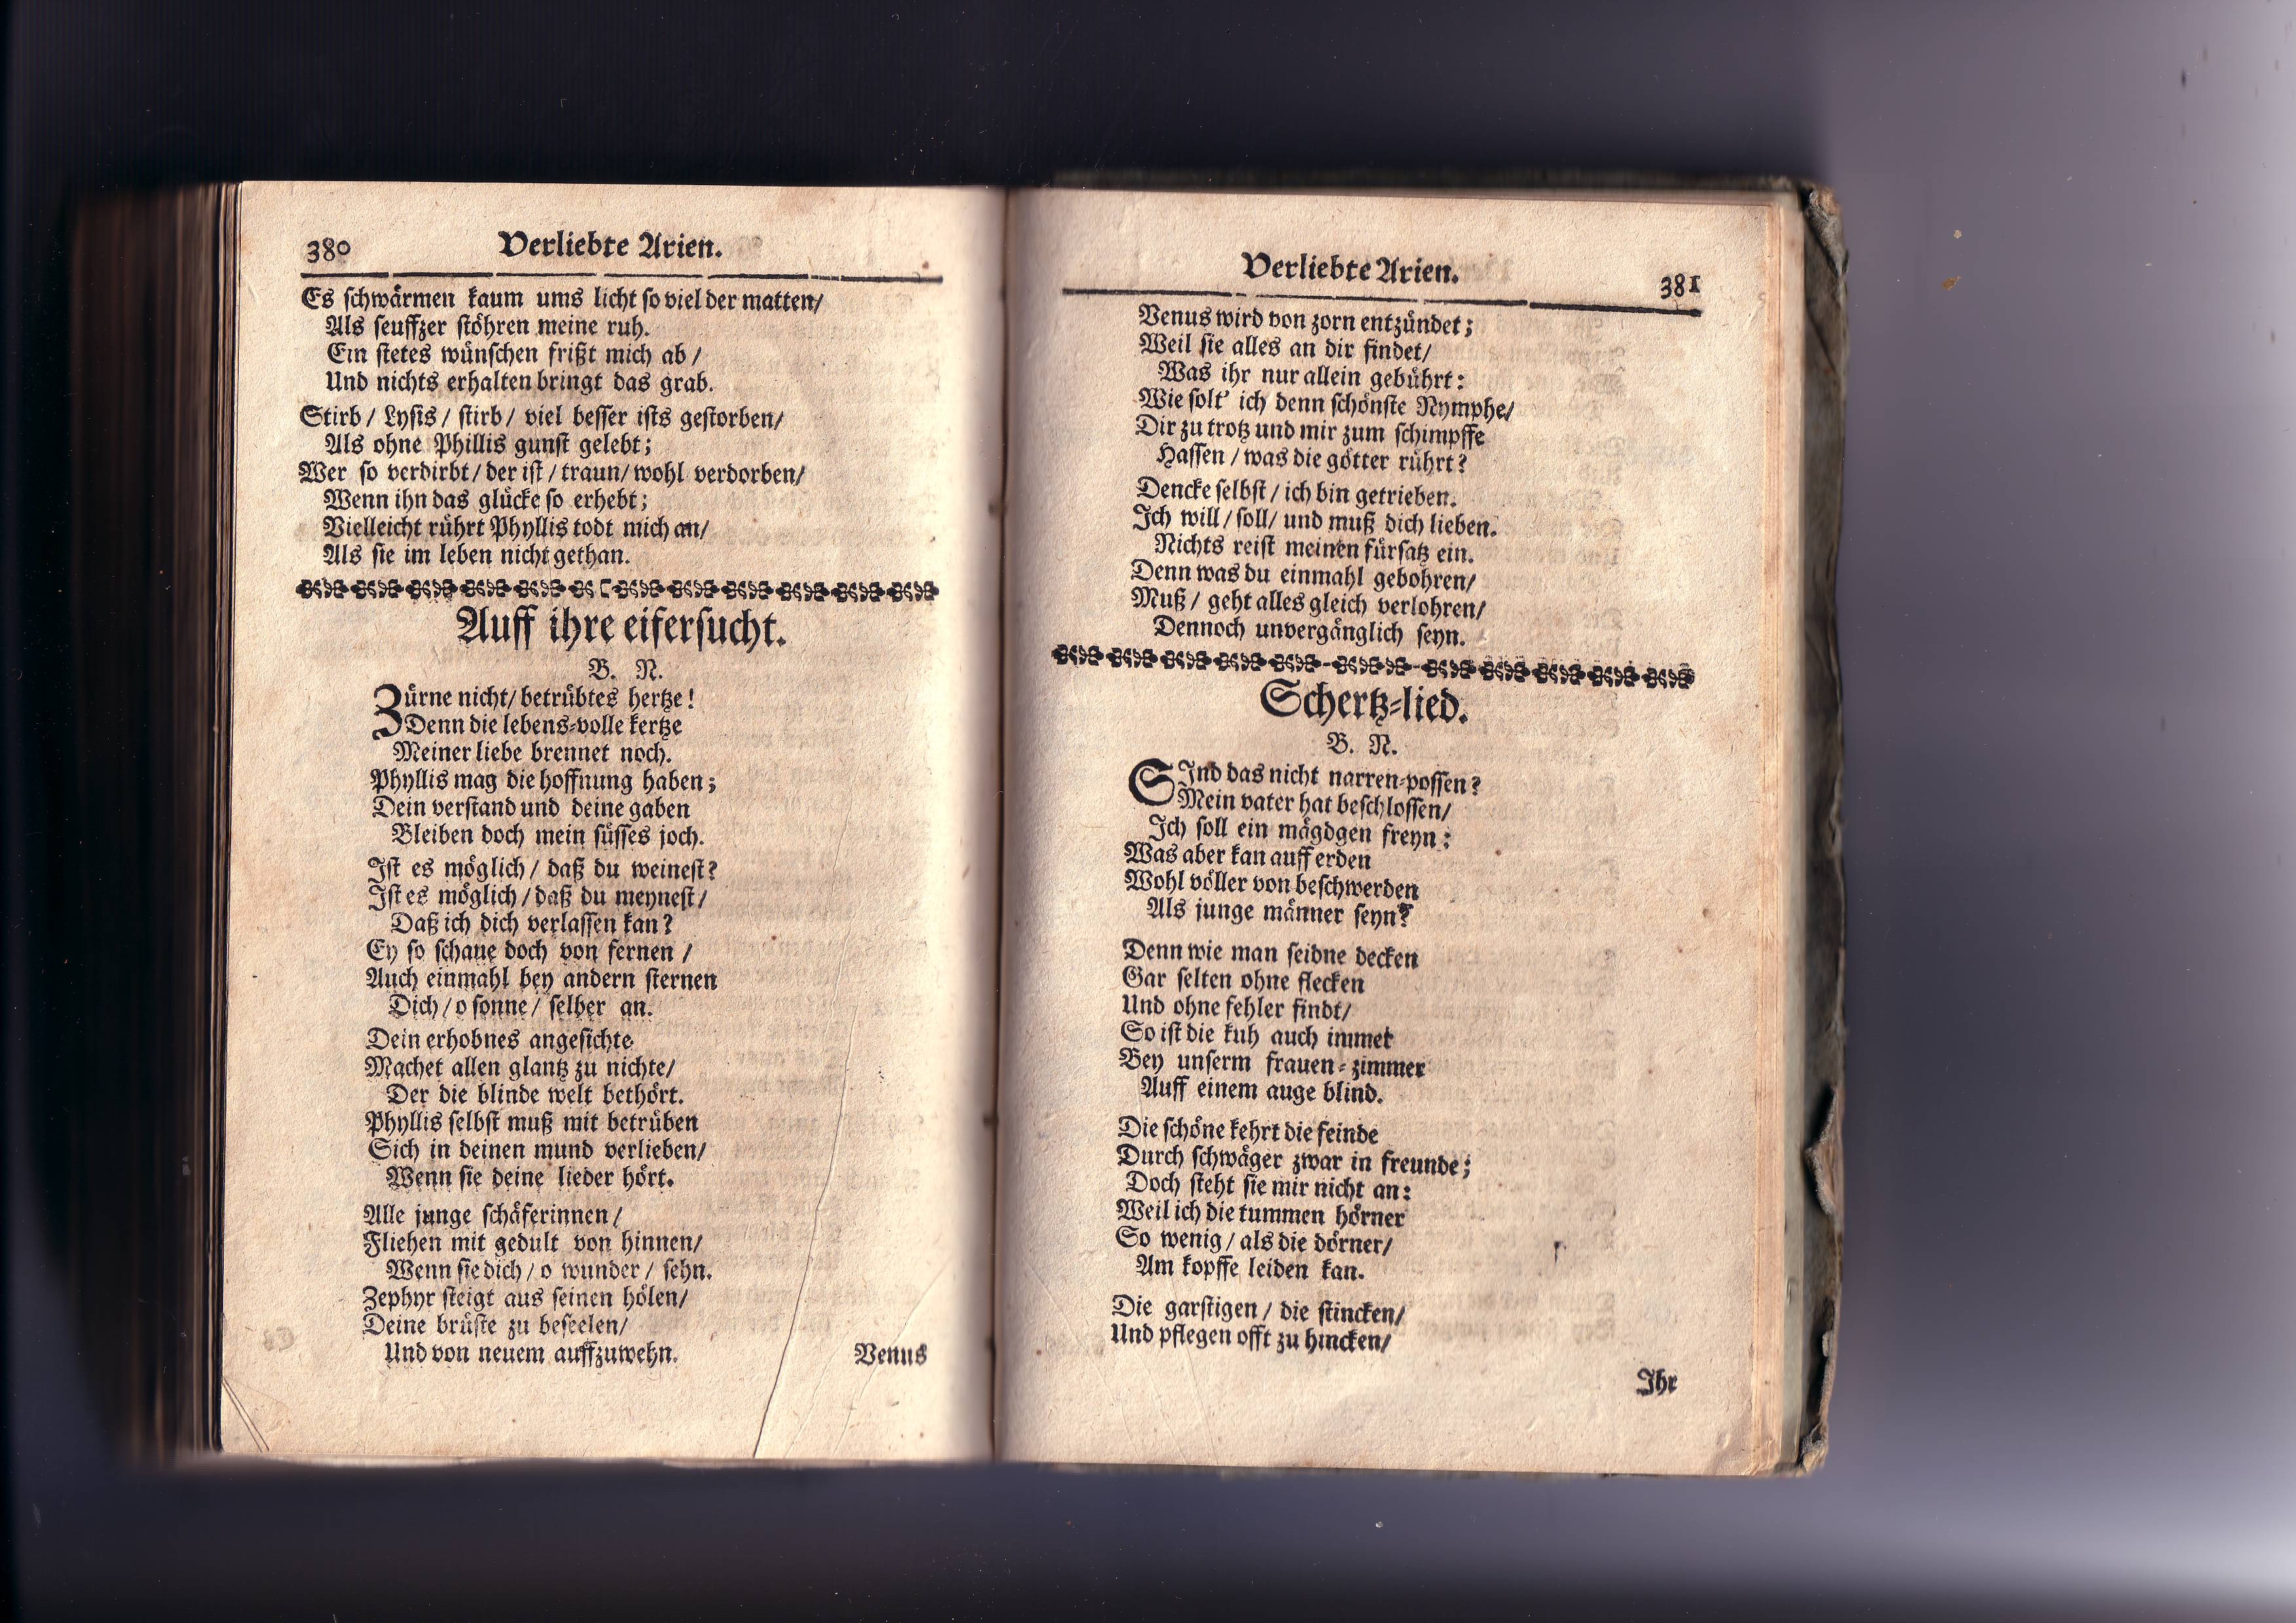 380
Verliebte Arien.
Es schwärmen kaum ums licht so viel der matten/
Als seuffzer stöhren meine ruh.
Ein stetes wünschen frißt mich ab /
Und nichts erhalten bringt das grab.
Stirb / Lysis / stirb / viel besser ists gestorben/
Als ohne Phillis gunst gelebt;
Wer so verdirbt / der ist / traun / wohl verdorben/
Wenn ihn das glücke so erhebt;
Vielleicht rührt Phyllis todt mich an/
Als sie im leben nicht gethan.
Auff ihre eifersucht.
B. N.
Zürne nicht / betrübtes hertze!
Denn die lebens-volle kertze
Meiner liebe brennet noch.
Phyllis mag die hoffnung haben;
Dein verstand und deine gaben
Bleiben doch mein süsses joch.
Ist es möglich / daß du weinest?
Ist es möglich / daß du meynest /
Daß ich dich verlassen kan?
Ey so schaue doch von fernen /
Auch einmahl bey andern sternen
Dich / o sonne / selber an.
Dein erhobnes angesichte
Machet allen glantz zu nichte/
Der die blinde welt bethört.
Phyllis selbst muß mit betrüben
Sich in deinen mund verlieben/
Wenn sie deine lieder hört.
Alle junge schäferinnen /
Fliehen mit gedult von hinnen/
Wenn sie dich / o wunder / sehn.
Zephyr steigt aus seinen hölen/
Deine brüste zu beseelen/
Und von neuem auffzuwehn.
Venus
Verliebte Arien.
381
Venus wird von zorn entzündet;
Weil sie alles an dir findet/
Was ihr nur allein gebührt:
Wie solt' ich denn schönste Nymphe/
Dir zu trotz und mir zum schimpffe
Hassen / was die götter rührt?
Dencke selbst / ich bin getrieben.
Ich will / soll / und muß dich lieben.
Nichts reist meinen fürsatz ein.
Denn was du einmahl gebohren/
Muß / geht alles gleich verlohren/
Dennoch unvergänglich seyn.
Schertz-lied.
B. N.
SInd das nicht narren-possen?
Mein vater hat beschlossen/
Ich soll ein mägdgen freyn:
Was aber kan auff erden
Wohl völler von beschwerden
Als junge männer seyn?
Denn wie man seidne decken
Gar selten ohne flecken
Und ohne fehler findt/
So ist die kuh auch immer
Bey unserm frauen-zimmer
Auff einem auge blind.
Die schöne kehrt die feinde
Durch schwäger zwar in freunde;
Doch steht sie mir nicht an:
Weil ich die tummen hörner
So wenig / als die dörner/
Am kopffe leiden kan.
Die garstigen / die stincken/
Und pflegen offt zu hincken/
Ihr